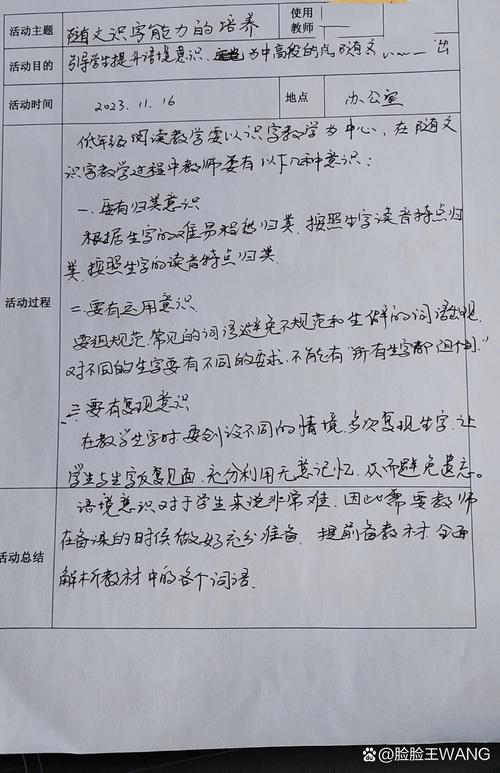 活动主题 随文识字能力的培养 使用教师
活动目的 引导学生提升语境意识、为中高段的 随文
活动时间 2023.11.16 地点 办公室
活动过程
低年级阅读教学要以识字教学为中心,在随文
识字教学过程中教师要有以下几种意识:
一.要有归类意识
根据生字的难易程度归类.按照生字读音特点归
类.按照生字的读音特点归类.
二.要有运用意识
要组规范.常见的词语避免不规范和生僻的词语出现
对不同的生字要有不同的要求.不能有“所有生字都
三.要有复现意识
在教学生字时.要创设不同的情境.多次复现生字.让
学生与生字反复见面.充分利用无意记忆.从而避免遗忘。
活动总结
语境意识对于学生来说非常难.因此需要教师
在备课的时候做好充分准备.提前备教材.全面
解析教材中的各个词语.
@脸脸王WANG